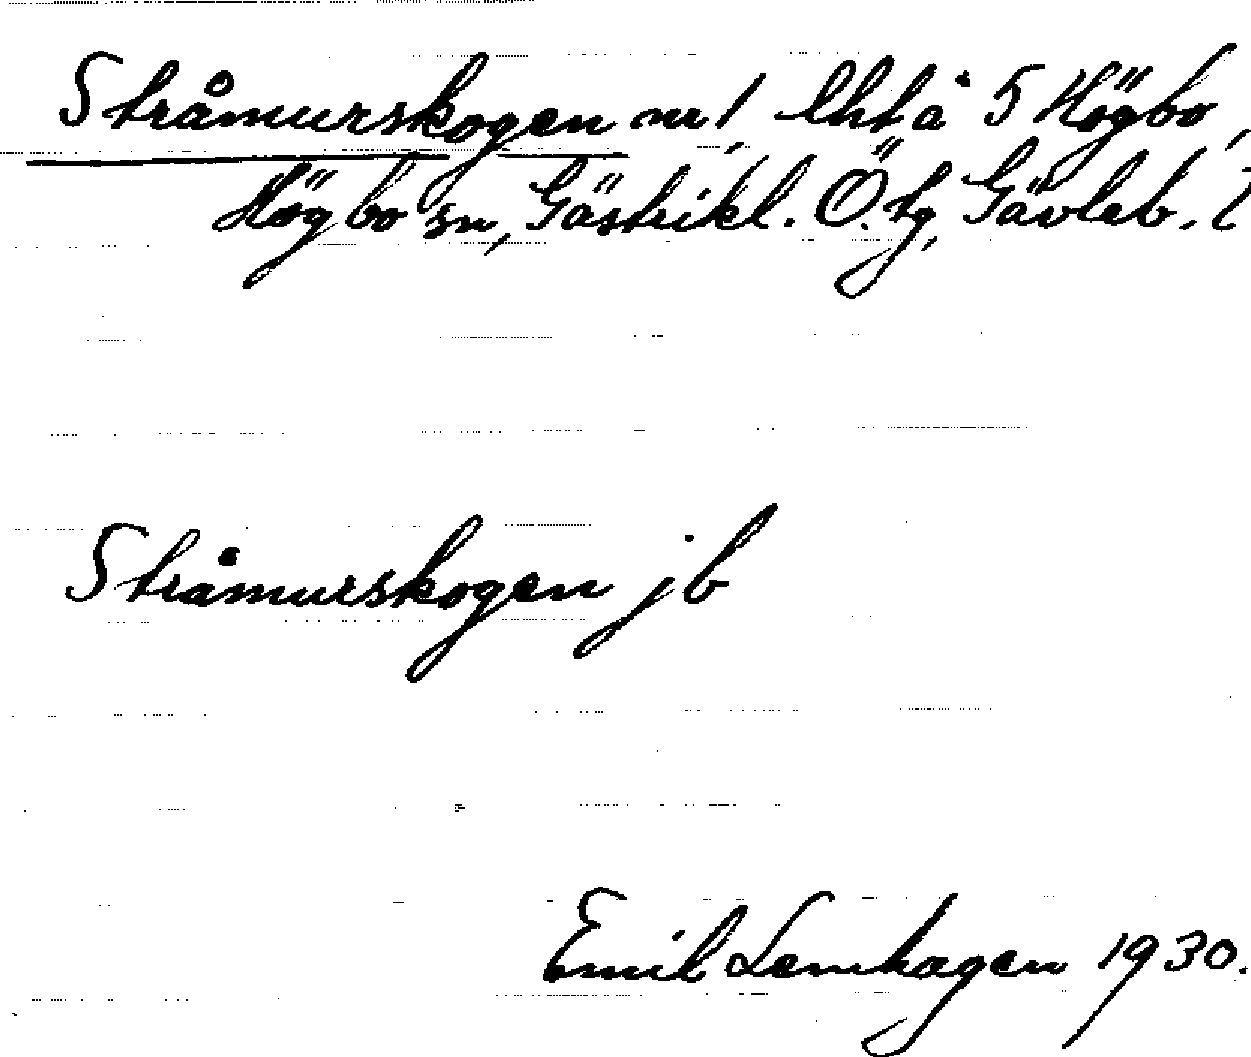 Stråmurskogen nr 1, lht å 5 Högbo,
Högbo sn, Gästrikl. Ö. tg, Gävleb. l
Stråmurskogen jb
Emil Lemhagen 1930.